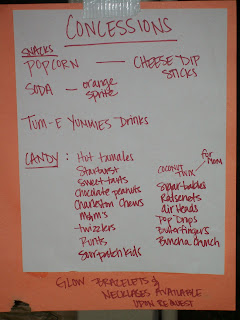 CONCESSIONS
SNACKS
POPCORN — CHEESE DIP
STICKS
SODA — orange
sprite
Tum-E Yummies Drinks
CANDY : Hot tamales
Starburst
Sweet tarts
Chocolate peanuts
Charleston Chews
M&m's
twizzlers
Runts
Sour patch kids
for mom
coconut
Sugar babies
Raisenets
air Heads
Pop Drops
Butterfingers
Buncha crunch
GLOW BRACELETS &
NECKLACES AVAILABLE
UPON REQUEST